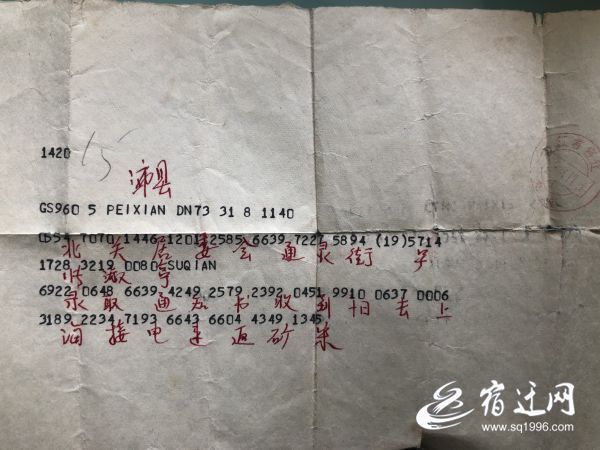 1420 15
沛县
GS960 5 PEIXIAN DN73 31 8 1140
0554 7070 1446 1201 2585 6639 7227 5894 (19)5714
北关居委会通泉街
1728 3219 0080 SUQIAN
张淑亭
6922 0648 6639 4249 2579 2392 0451 9910 0637 0006
录取通知书收到10日去上
3189 2234 7193 6643 6604 4349 1345
海接电速返砂宋
宿迁网
www.sq1996.com